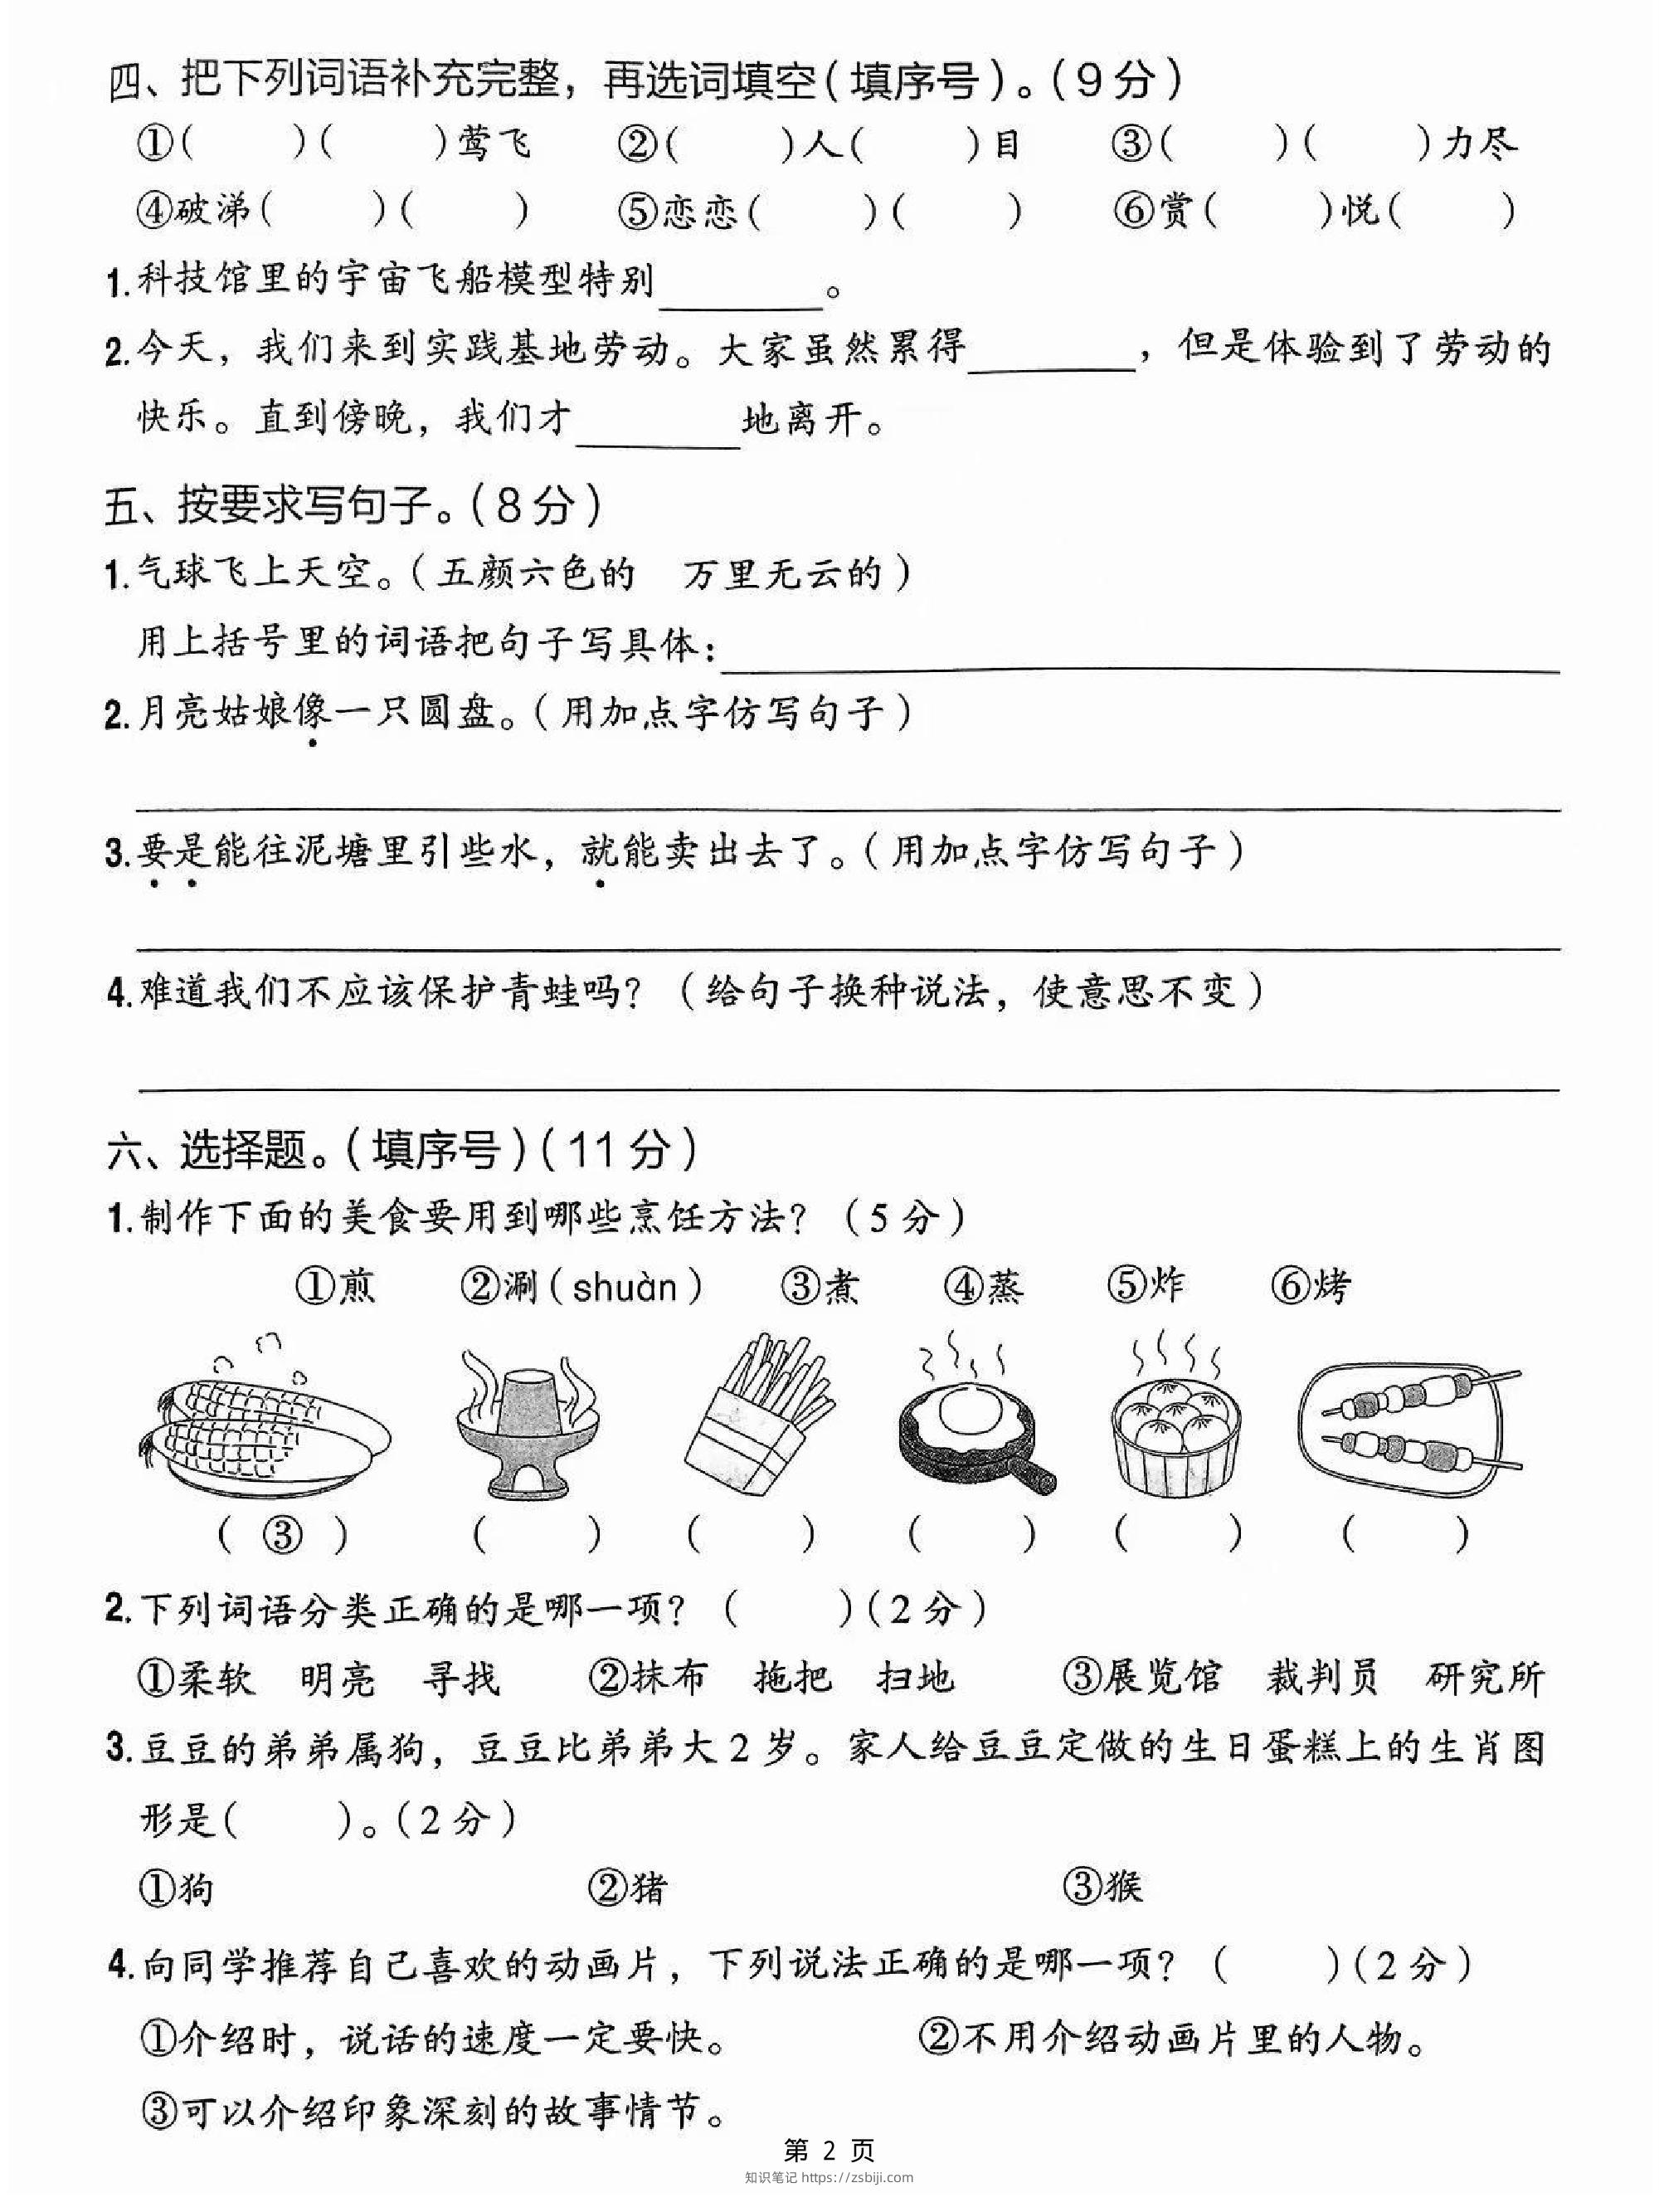 四、把下列词语补充完整，再选词填空(填序号)。(9分)
①(　　)(　　)莺飞　②(　　)人(　　)目　③(　　)(　　)力尽
④破涕(　　)(　　)　⑤恋恋(　　)(　　)　⑥赏(　　)悦(　　)
1.科技馆里的宇宙飞船模型特别________。
2.今天，我们来到实践基地劳动。大家虽然累得________，但是体验到了劳动的
快乐。直到傍晚，我们才________地离开。
五、按要求写句子。(8分)
1.气球飞上天空。(五颜六色的　万里无云的)
用上括号里的词语把句子写具体：________
2.月亮姑娘像一只圆盘。(用加点字仿写句子)
3.要是能往泥塘里引些水，就能卖出去了。(用加点字仿写句子)
4.难道我们不应该保护青蛙吗？(给句子换种说法，使意思不变)
六、选择题。(填序号)(11分)
1.制作下面的美食要用到哪些烹饪方法？(5分)
①煎　②涮(shuàn)　③煮　④蒸　⑤炸　⑥烤
(③)　(　　)　(　　)　(　　)　(　　)　(　　)
2.下列词语分类正确的是哪一项？(　　)(2分)
①柔软　明亮　寻找　②抹布　拖把　扫地　③展览馆　裁判员　研究所
3.豆豆的弟弟属狗，豆豆比弟弟大2岁。家人给豆豆定做的生日蛋糕上的生肖图
形是(　　)。(2分)
①狗　②猪　③猴
4.向同学推荐自己喜欢的动画片，下列说法正确的是哪一项？(　　)(2分)
①介绍时，说话的速度一定要快。　②不用介绍动画片里的人物。
③可以介绍印象深刻的故事情节。
第 2 页
知识笔记 https://zsbiji.com